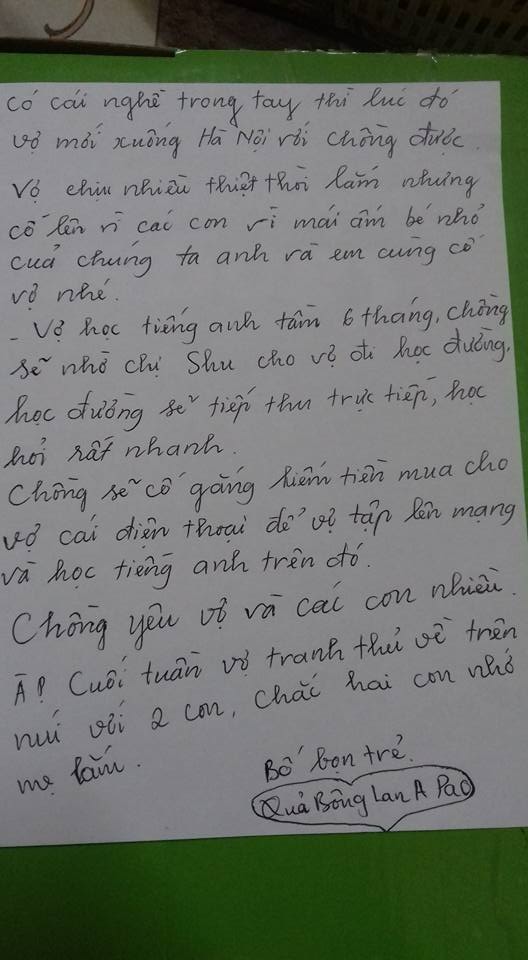 có cái nghề trong tay thì lúc đó
vợ mới xuống Hà Nội với chồng được.
Vợ chịu nhiều thiệt thòi lắm nhưng
cố lên vì các con vì mái ấm bé nhỏ
của chúng ta anh và em cùng cố
vợ nhé.
- Vợ học tiếng anh tầm 6 tháng, chồng
sẽ nhờ chị Shu cho vợ đi học đường,
học đường sẽ tiếp thu trực tiếp, học
hỏi rất nhanh.
Chồng sẽ cố gắng kiếm tiền mua cho
vợ cái điện thoại để vợ tập lên mạng
và học tiếng anh trên đó.
Chồng yêu vợ và các con nhiều.
À! Cuối tuần vợ tranh thủ về trên
núi với 2 con, chắc hai con nhớ
mẹ lắm.
Bố bọn trẻ.
Quả Bông lan A Pao